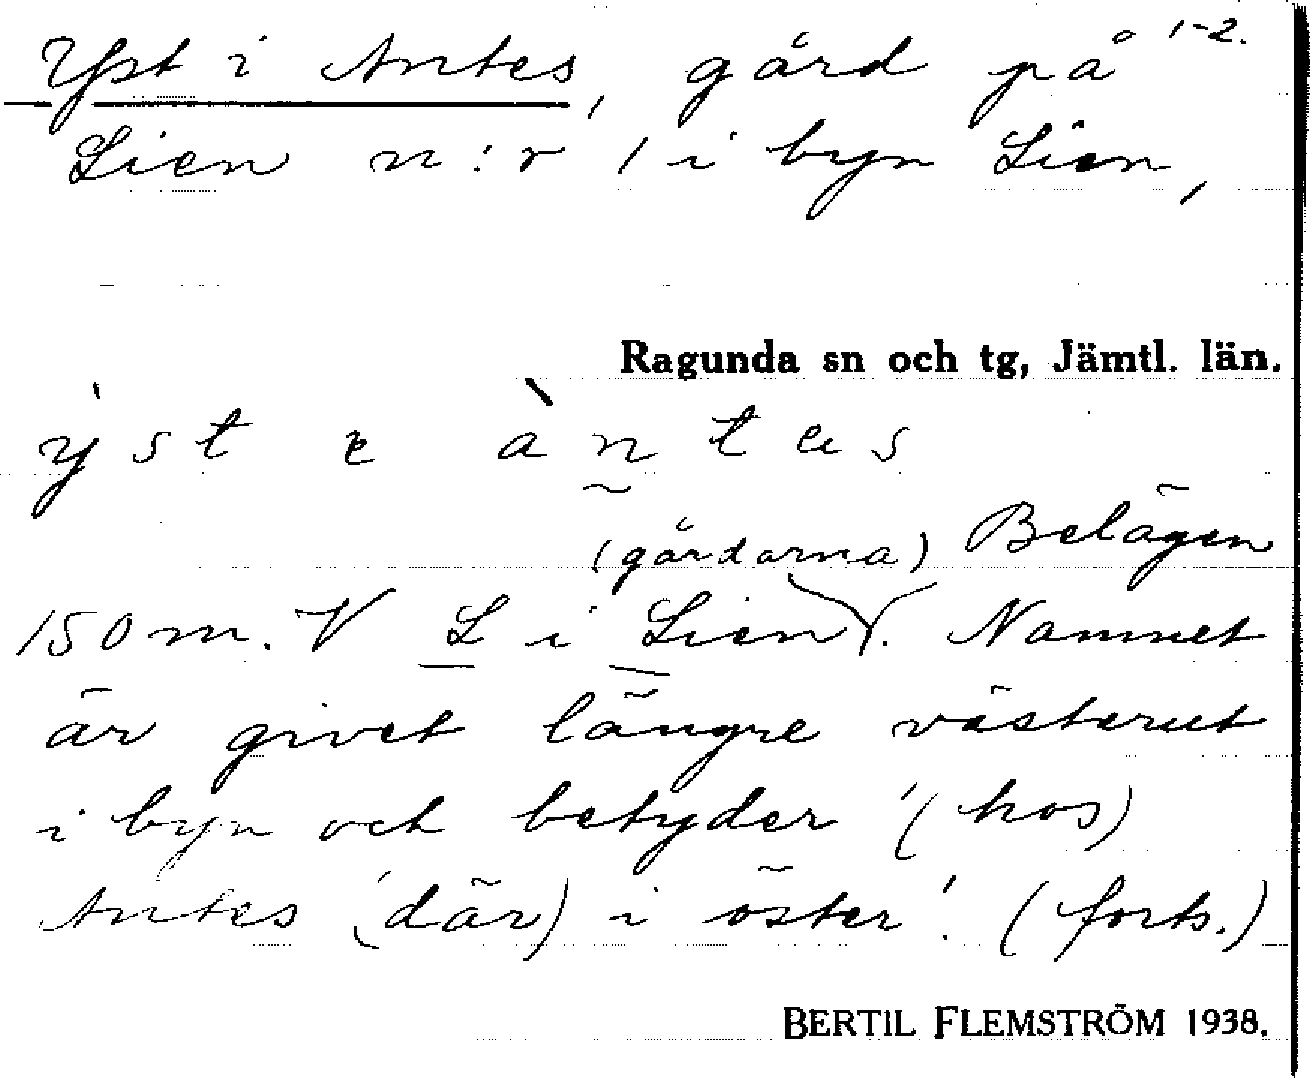 Yst i Antes, gård på 1-2.
Lien n:r 1 i byn Lien,
Ragunda sn och tg, Jämtl. län.
ýst e àntes
(gårdarna) Belägen
150 m. V L i Lien. Namnet
är givet längre västerut
i byn och betyder '(hos)
Antes (där) i öster'. (forts.)
BERTIL FLEMSTRÖM 1938.